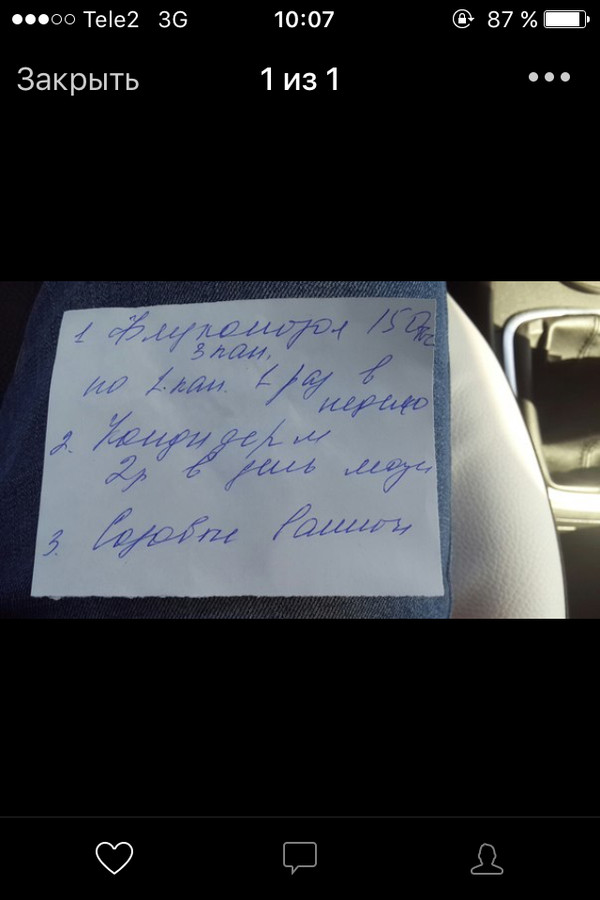 Tele2 3G 10:07 87 %
Закрыть 1 из 1
1 Флуконозол 150мг
3 кап.
по 1 кап. 1 раз в
неделю
2. Кандидерм
2р в день мази
3. Содовые ванночки